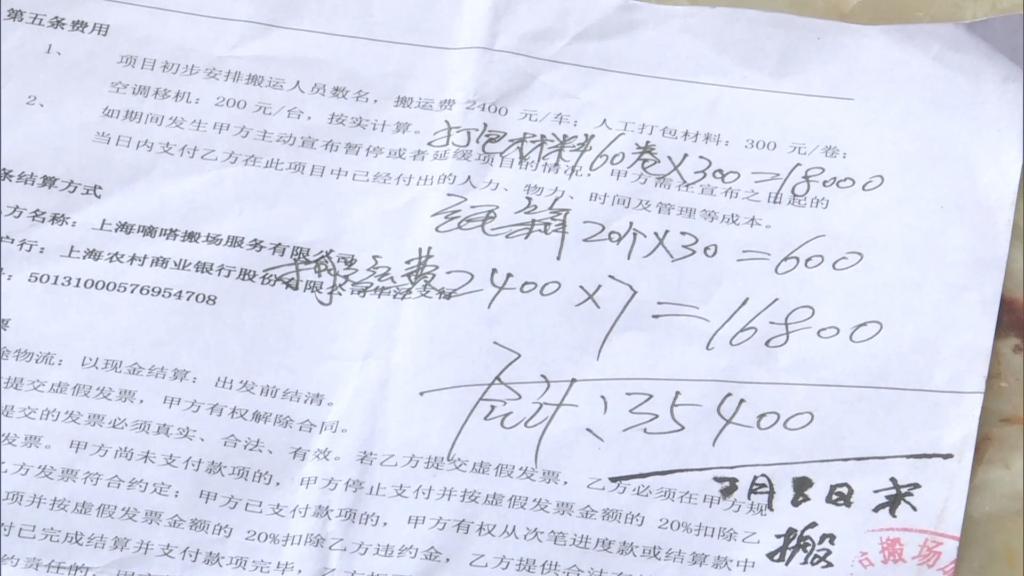 第五条费用
1、
项目初步安排搬运人员数名，搬运费 2400 元/车；人工打包材料：300 元/卷；
空调移机：200 元/台，按实计算。
打包材料 60卷×300=18000
2、
如期间发生甲方主动宣布暂停或者延缓项目的情况，甲方需在宣布之日起的
当日内支付乙方在此项目中已经付出的人力、物力、时间及管理等成本。
20个×30=600
条结算方式
方名称：上海嘀嗒搬场服务有限公司
户行：上海农村商业银行股份有限公司华泾支行
：50131000576954708
搬运费2400×7=16800
票
物流：以现金结算：出发前结清。
合计：35400
提交虚假发票，甲方有权解除合同。
提交的发票必须真实、合法、有效。若乙方提交虚假发票，乙方必须在甲方规
发票。甲方尚未支付款项的，甲方停止支付并按虚假发票金额的 20%扣除乙
乙方发票符合约定；甲方已支付款项的，甲方有权从次笔进度款或结算款中
项并按虚假发票金额的 20%扣除乙方违约金，乙方提供合法
付已完成结算并支付款项完毕，乙方
约责任的，甲方
月8日来
搬
搬场